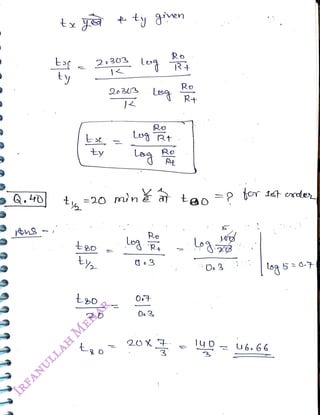 tx पूछे & ty given
tx/ty = 2.303/K log Ro/Rt / 2.303/K log Ro/Rt
tx/ty = Log Ro/Rt / Log Ro/Rt
Q.40 t1/2 = 20 min है तो t80 = ? for 1st order
Ans -
t80/t1/2 = log Ro/Rt / 0.3 = Log 100/20 / 0.3 5 log 5 = 0.7
t80/20 = 0.7/0.3
t80 = 20 x 7/3 = 140/3 = 46.66
IRFANULLAH MEHAR